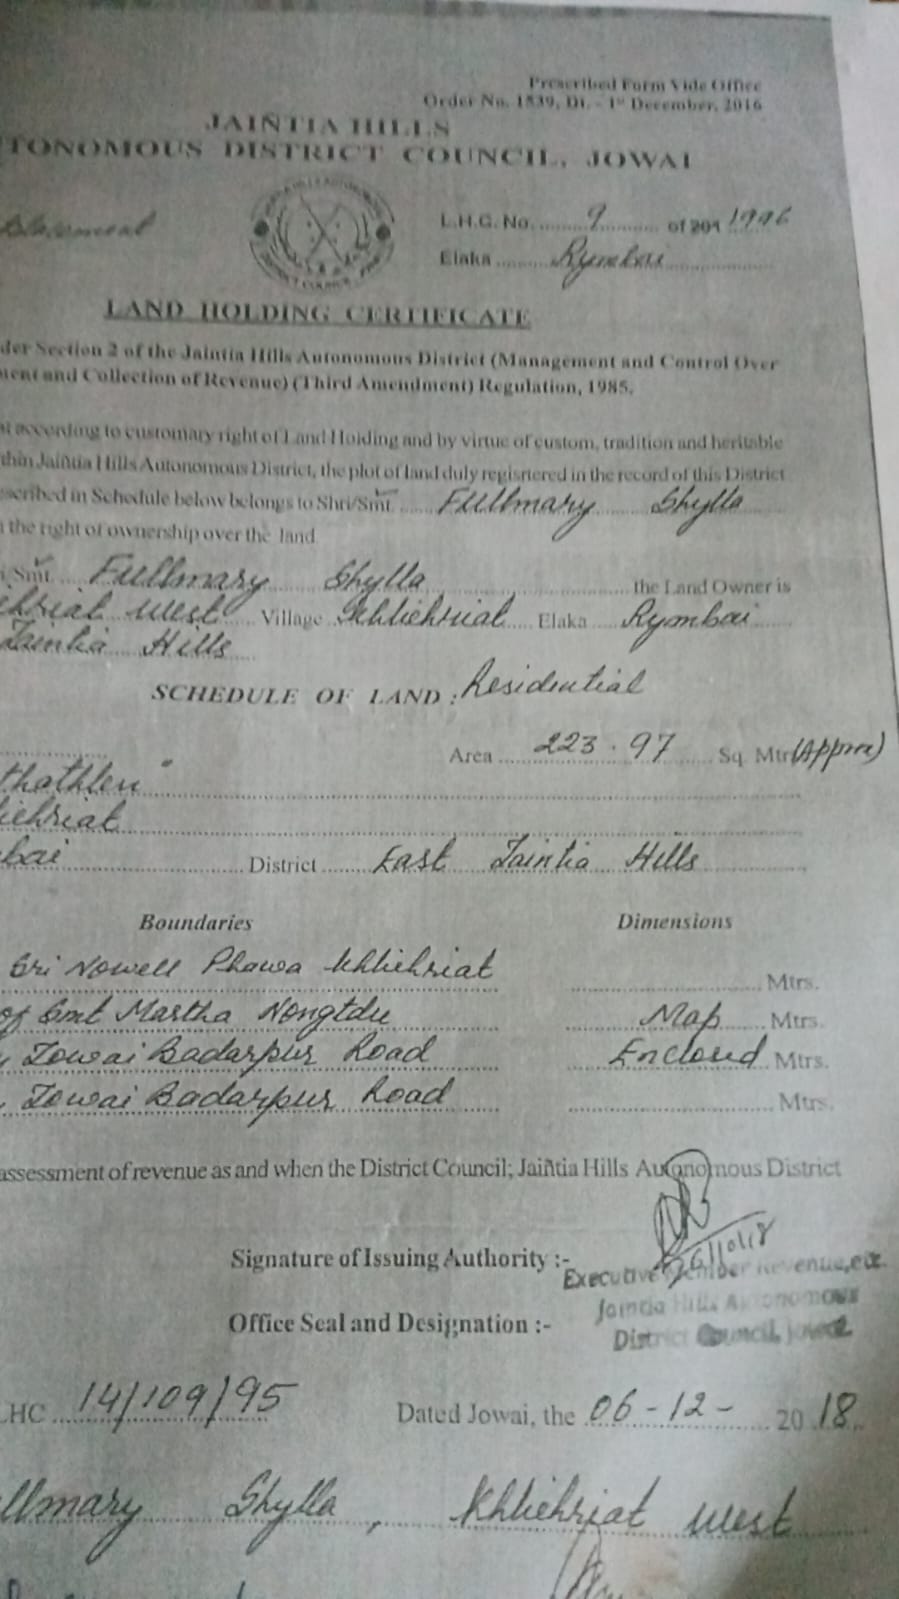 Prescribed Form Vide Office
Order No. 1539, Dt. - 1st December, 2016
JAIÑTIA HILLS
TONOMOUS DISTRICT COUNCIL, JOWAI
L.H.C. No. 9 of 201 1996
Elaka Rymbai
LAND HOLDING CERTIFICATE
der Section 2 of the Jaintia Hills Autonomous District (Management and Control Over
ment and Collection of Revenue) (Third Amendment) Regulation, 1985.
at according to customary right of Land Holding and by virtue of custom, tradition and heritable
thin Jaiñtia Hills Autonomous District, the plot of land duly regisrtered in the record of this District
scribed in Schedule below belongs to Shri/Smt. Fullmary Shylla
the right of ownership over the land
i/Smt. Fullmary Shylla the Land Owner is
ehriat West Village Khliehriat Elaka Rymbai
Jaintia Hills
SCHEDULE OF LAND : Residential
Area 223.97 Sq. Mtr (Approx)
thathleu"
iehriat
bai District East Jaintia Hills
Boundaries Dimensions
Sri Nowell Phawa Khliehriat Mtrs.
of Smt Martha Nongtdu Map Mtrs.
Jowai Badarpur Road Enclosed Mtrs.
Jowai Badarpur Road Mtrs.
assessment of revenue as and when the District Council; Jaiñtia Hills Autonomous District
Signature of Issuing Authority :-
Executive Member Revenue, etc.
Jaintia Hills Autonomous
Office Seal and Designation :-
District Council, Jowai.
LHC 14/109/95 Dated Jowai, the 06-12- 2018
llmary Shylla, Khliehriat West